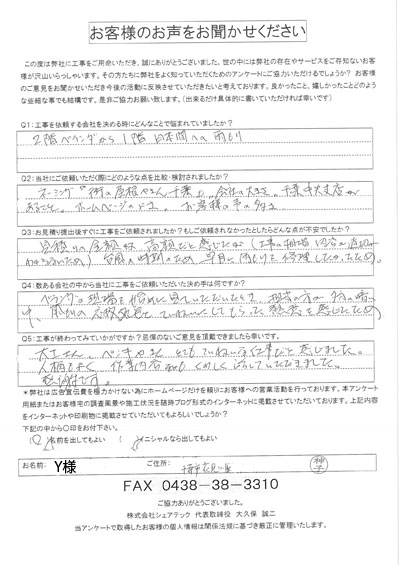 お客様のお声をお聞かせください
この度は弊社に工事をご用命いただき、誠にありがとうございました。世の中には弊社の存在やサービスをご存知ないお客
様が沢山いらっしゃいます。その方たちに弊社をよく知っていただくためのアンケートにご協力いただけるでしょうか？ お客様
のご意見をお聞かせいただき今後の活動に反映させていただきたいと考えております。良かったこと、嬉しかったことどのよう
な些細な事でも結構です。是非ご協力お願い致します。(出来るだけ具体的に書いていただければ幸いです)
Q1:工事を依頼する会社を決める時にどんなことで悩まれていましたか？
2階ベランダから1階日本間への雨もり
Q2:当社にご依頼いただく際にどのような点を比較・検討されましたか？
ネーミング「街の屋根やさん千葉」。会社の大きさ。千葉中央支店が
あること。ホームページの お客様の声の多さ
Q3:お見積り提出後すぐに工事をご依頼されましたか？もしご依頼されなかったとしたらどんな点が不安でしたか？
見積りの金額は、高額だと感じたが(工事の相場
わからないため) 台風の時期のため 早目に雨もりを修理したかったため。
Q4:数ある会社の中から当社に工事をご依頼いただいた決め手は何ですか？
ベランダの現場を始めに見ていただいたとき、担当の方が
中、雨もりの点検 ていねいにしてもらった 感じたため
Q5:工事が終わってみていかがですか？忌憚のないご意見を頂戴できましたら幸いです。
大工さん、ペンキやさん とてもていねいな仕事だと感じました。
人柄もよく 作業内容 もくわしく していただきました。
です。
＊弊社は広告宣伝費を極力かけない為にホームページだけを頼りにお客様への営業活動を行っております。本アンケート
用紙またはお客様宅の調査風景や施工状況を随時ブログ形式でインターネットに掲載させていただいております。上記内容
をインターネットや印刷物に掲載させていただいてもよろしいでしょうか？
下記の中から〇印をお付下さい。
(〇)名前を出してもよい ( )イニシャルなら出してもよい
お名前: Y様 ご住所: 千葉市花見川区
FAX 0438-38-3310
ご協力ありがとうございました。
株式会社シェアテック 代表取締役 大久保 誠二
当アンケートで取得したお客様の個人情報は関係法規に基づき厳正に管理いたします。